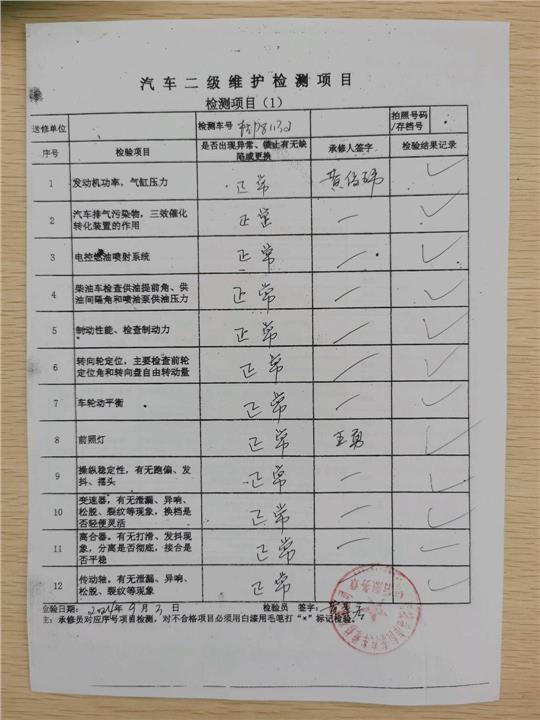 汽车二级维护检测项目
检测项目（1）
送修单位 检测车号 拍照号码/存档号
序号 检验项目 是否出现异常、锁止有无缺陷或更换 承修人签字 检验结果记录
1 发动机功率，气缸压力 正常 ✓
2 汽车排气污染物，三效催化转化装置的作用 正常 — ✓
3 电控燃油喷射系统 正常 — ✓
4 柴油车检查供油提前角、供油间隔角和喷油泵供油压力 正常 — ✓
5 制动性能、检查制动力 正常 — ✓
6 转向轮定位，主要检查前轮定位角和转向盘自由转动量 正常 — ✓
7 车轮动平衡 正常 — ✓
8 前照灯 正常 王勇 ✓
9 操纵稳定性，有无跑偏、发抖、摇头 正常 — ✓
10 变速器，有无泄漏、异响、松脱、裂纹等现象，换档是否轻便灵活 正常 — ✓
11 离合器，有无打滑、发抖现象，分离是否彻底，接合是否平稳 正常 — ✓
12 传动轴，有无泄漏、异响、松脱、裂纹等现象 正常 — ✓
佥验日期： 年 9 月 3 日 检验员 签字：
主：承修员对应序号项目检测，对不合格项目必须用白漆用毛笔打“×”标记检验。